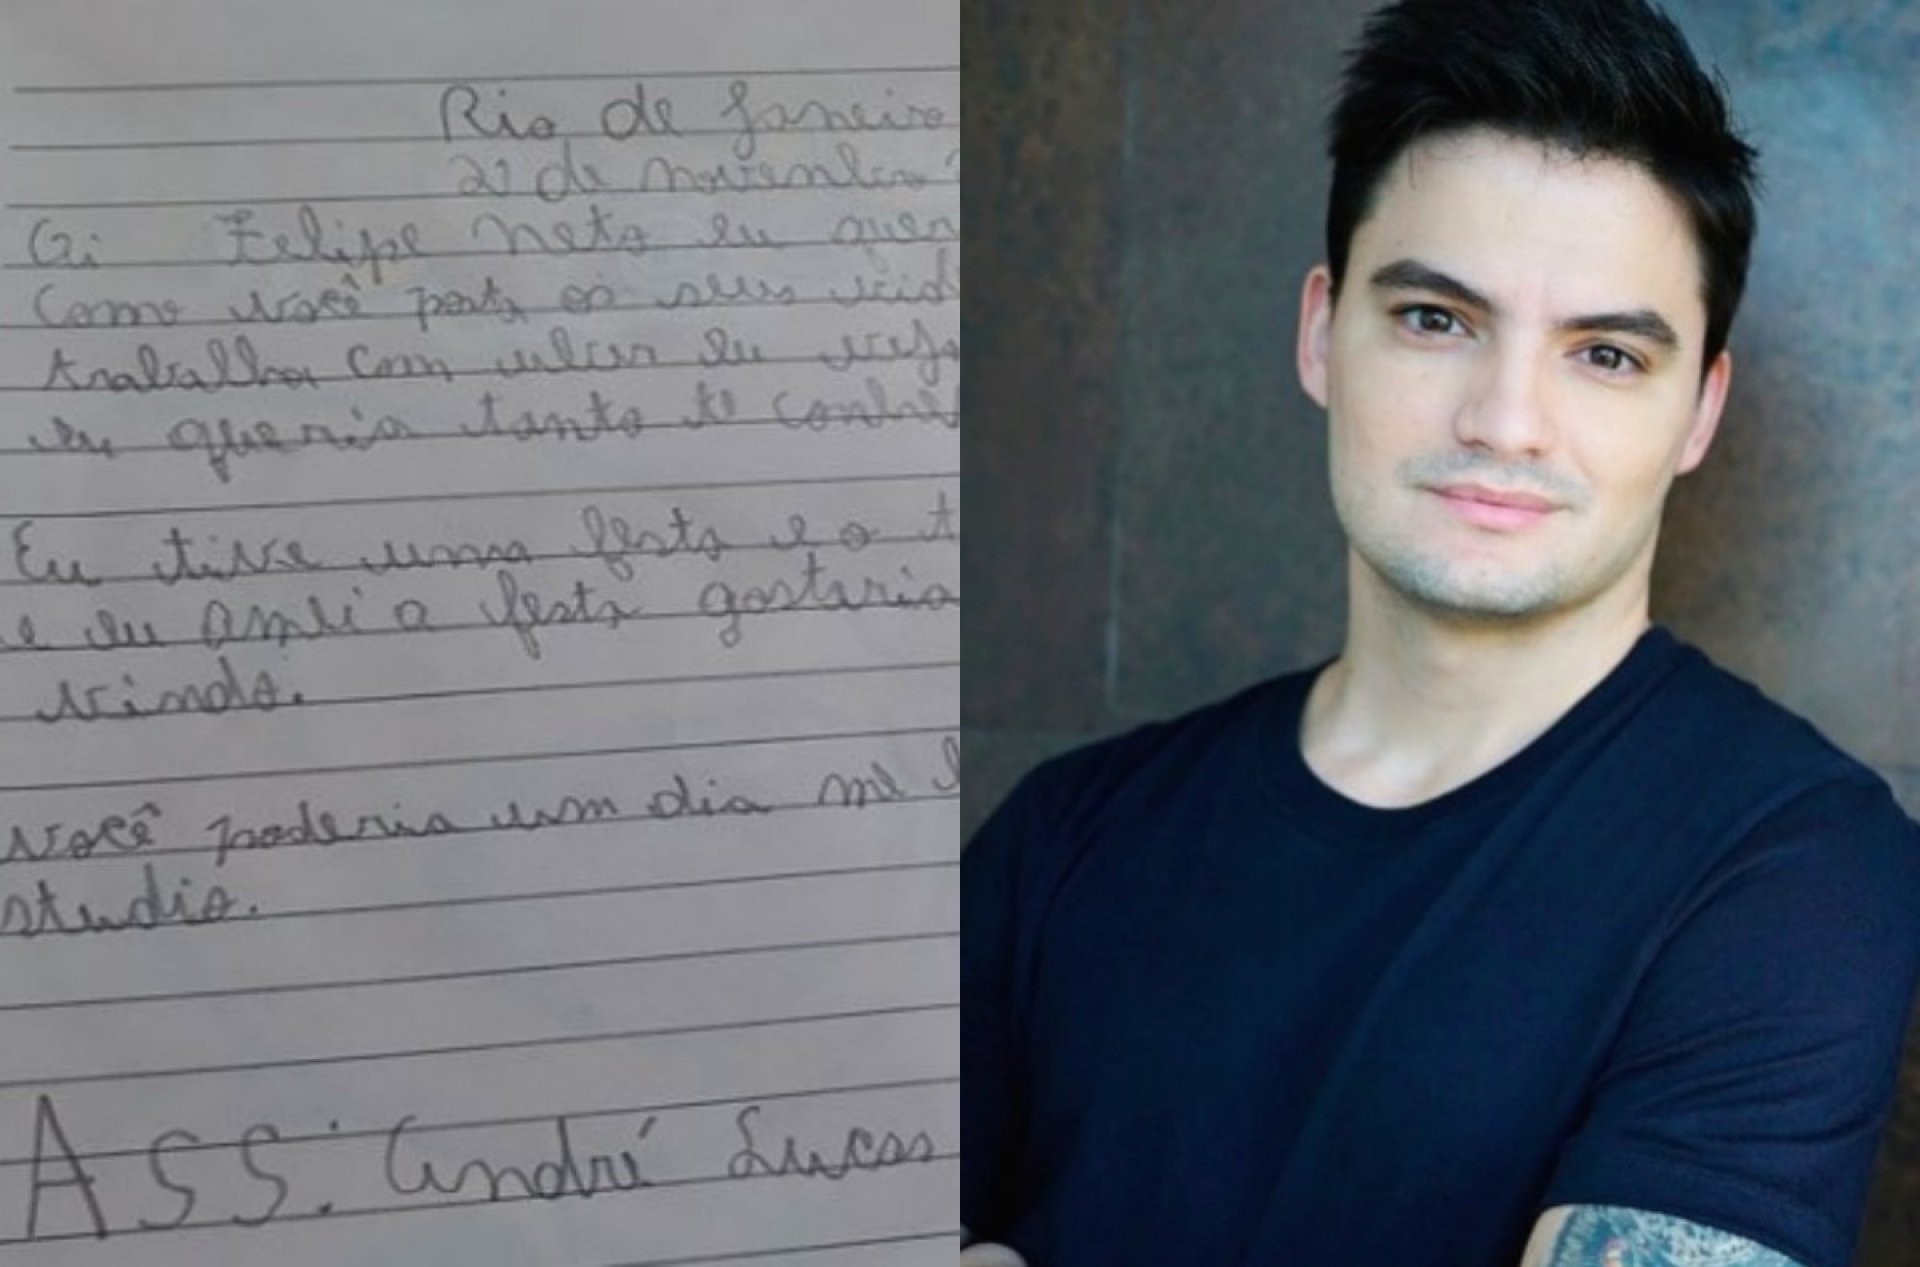 Rio de Janeiro
21 de novembro
Oi Felipe neto eu quer
como você posta os seus vid
trabalha com
eu queria tanto te conhe
Eu tive uma festa e o t
e eu amei a festa gostaria
vindo.
você poderia um dia me l
studio.
ASS: André Lucas